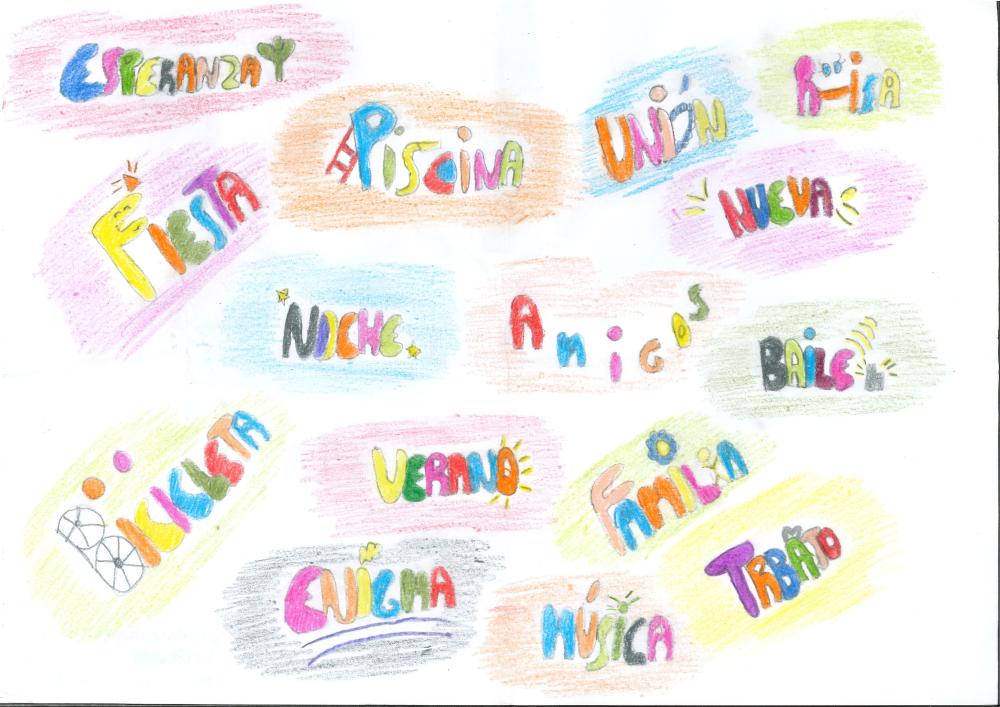 ESPERANZA
RISA
UNIÓN
PISCINA
FIESTA
NUEVA
NOCHE
AMIGOS
BAILE
BICICLETA
VERANO
FAMILIA
TRBAJO
ENIGMA
MÚSICA